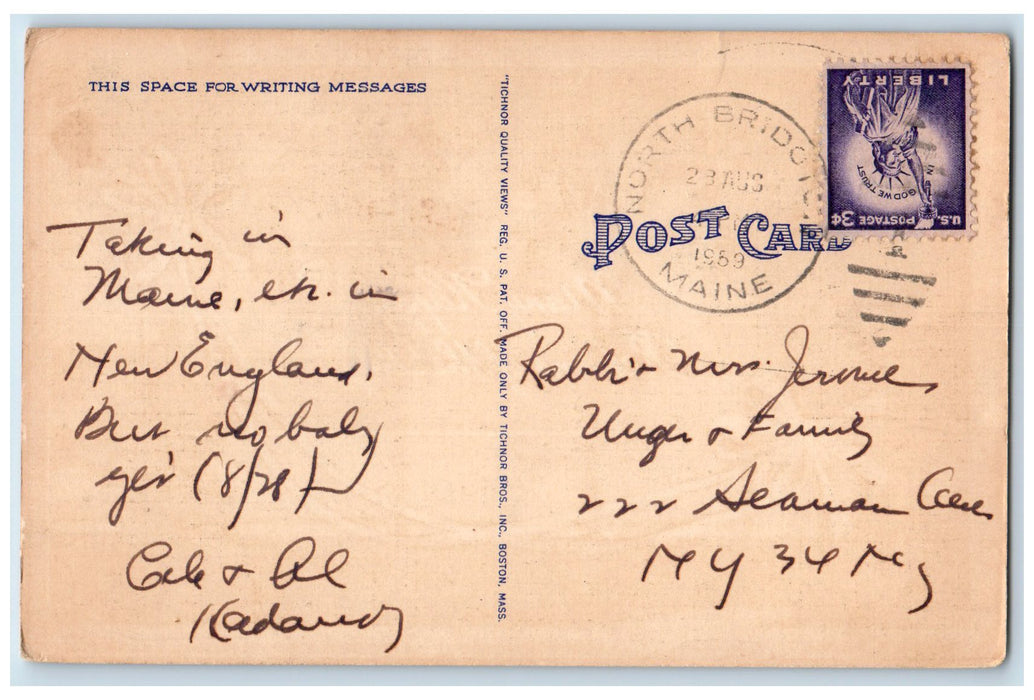 THIS SPACE FOR WRITING MESSAGES
Taking in
Maine, etc. in
New England.
But no baby
yet (8/28)
& Al
"TICHNOR QUALITY VIEWS" REG. U. S. PAT. OFF. MADE ONLY BY TICHNOR BROS., INC., BOSTON, MASS.
NORTH BRIDGTON
28 AUG
1959
MAINE
POST CARD
LIBERTY
IN GOD WE TRUST
U.S. POSTAGE 3¢
Rabbi & Mrs. Jerome
Unger & Family
222 Seaman Ave
NY 34 NY